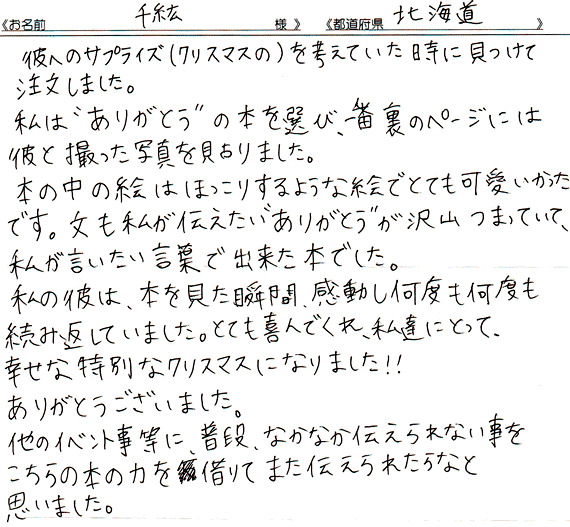 《お名前 千紘 様 》 《都道府県 北海道 》
彼へのサプライズ(クリスマスの)を考えていた時に見つけて
注文しました。
私は"ありがとう"の本を選び、一番裏のページには
彼と撮った写真を貼りました。
本の中の絵はほっこりするような絵でとても可愛いかった
です。文も私が伝えたい"ありがとう"が沢山つまっていて、
私が言いたい言葉で出来た本でした。
私の彼は、本を見た瞬間、感動し何度も何度も
続み返していました。とても喜んでくれ、私達にとって、
幸せな特別なクリスマスになりました!!
ありがとうございました。
他のイベント事等に、普段、なかなか伝えられない事を
こちらの本の力を借りてまた伝えられたらなと
思いました。